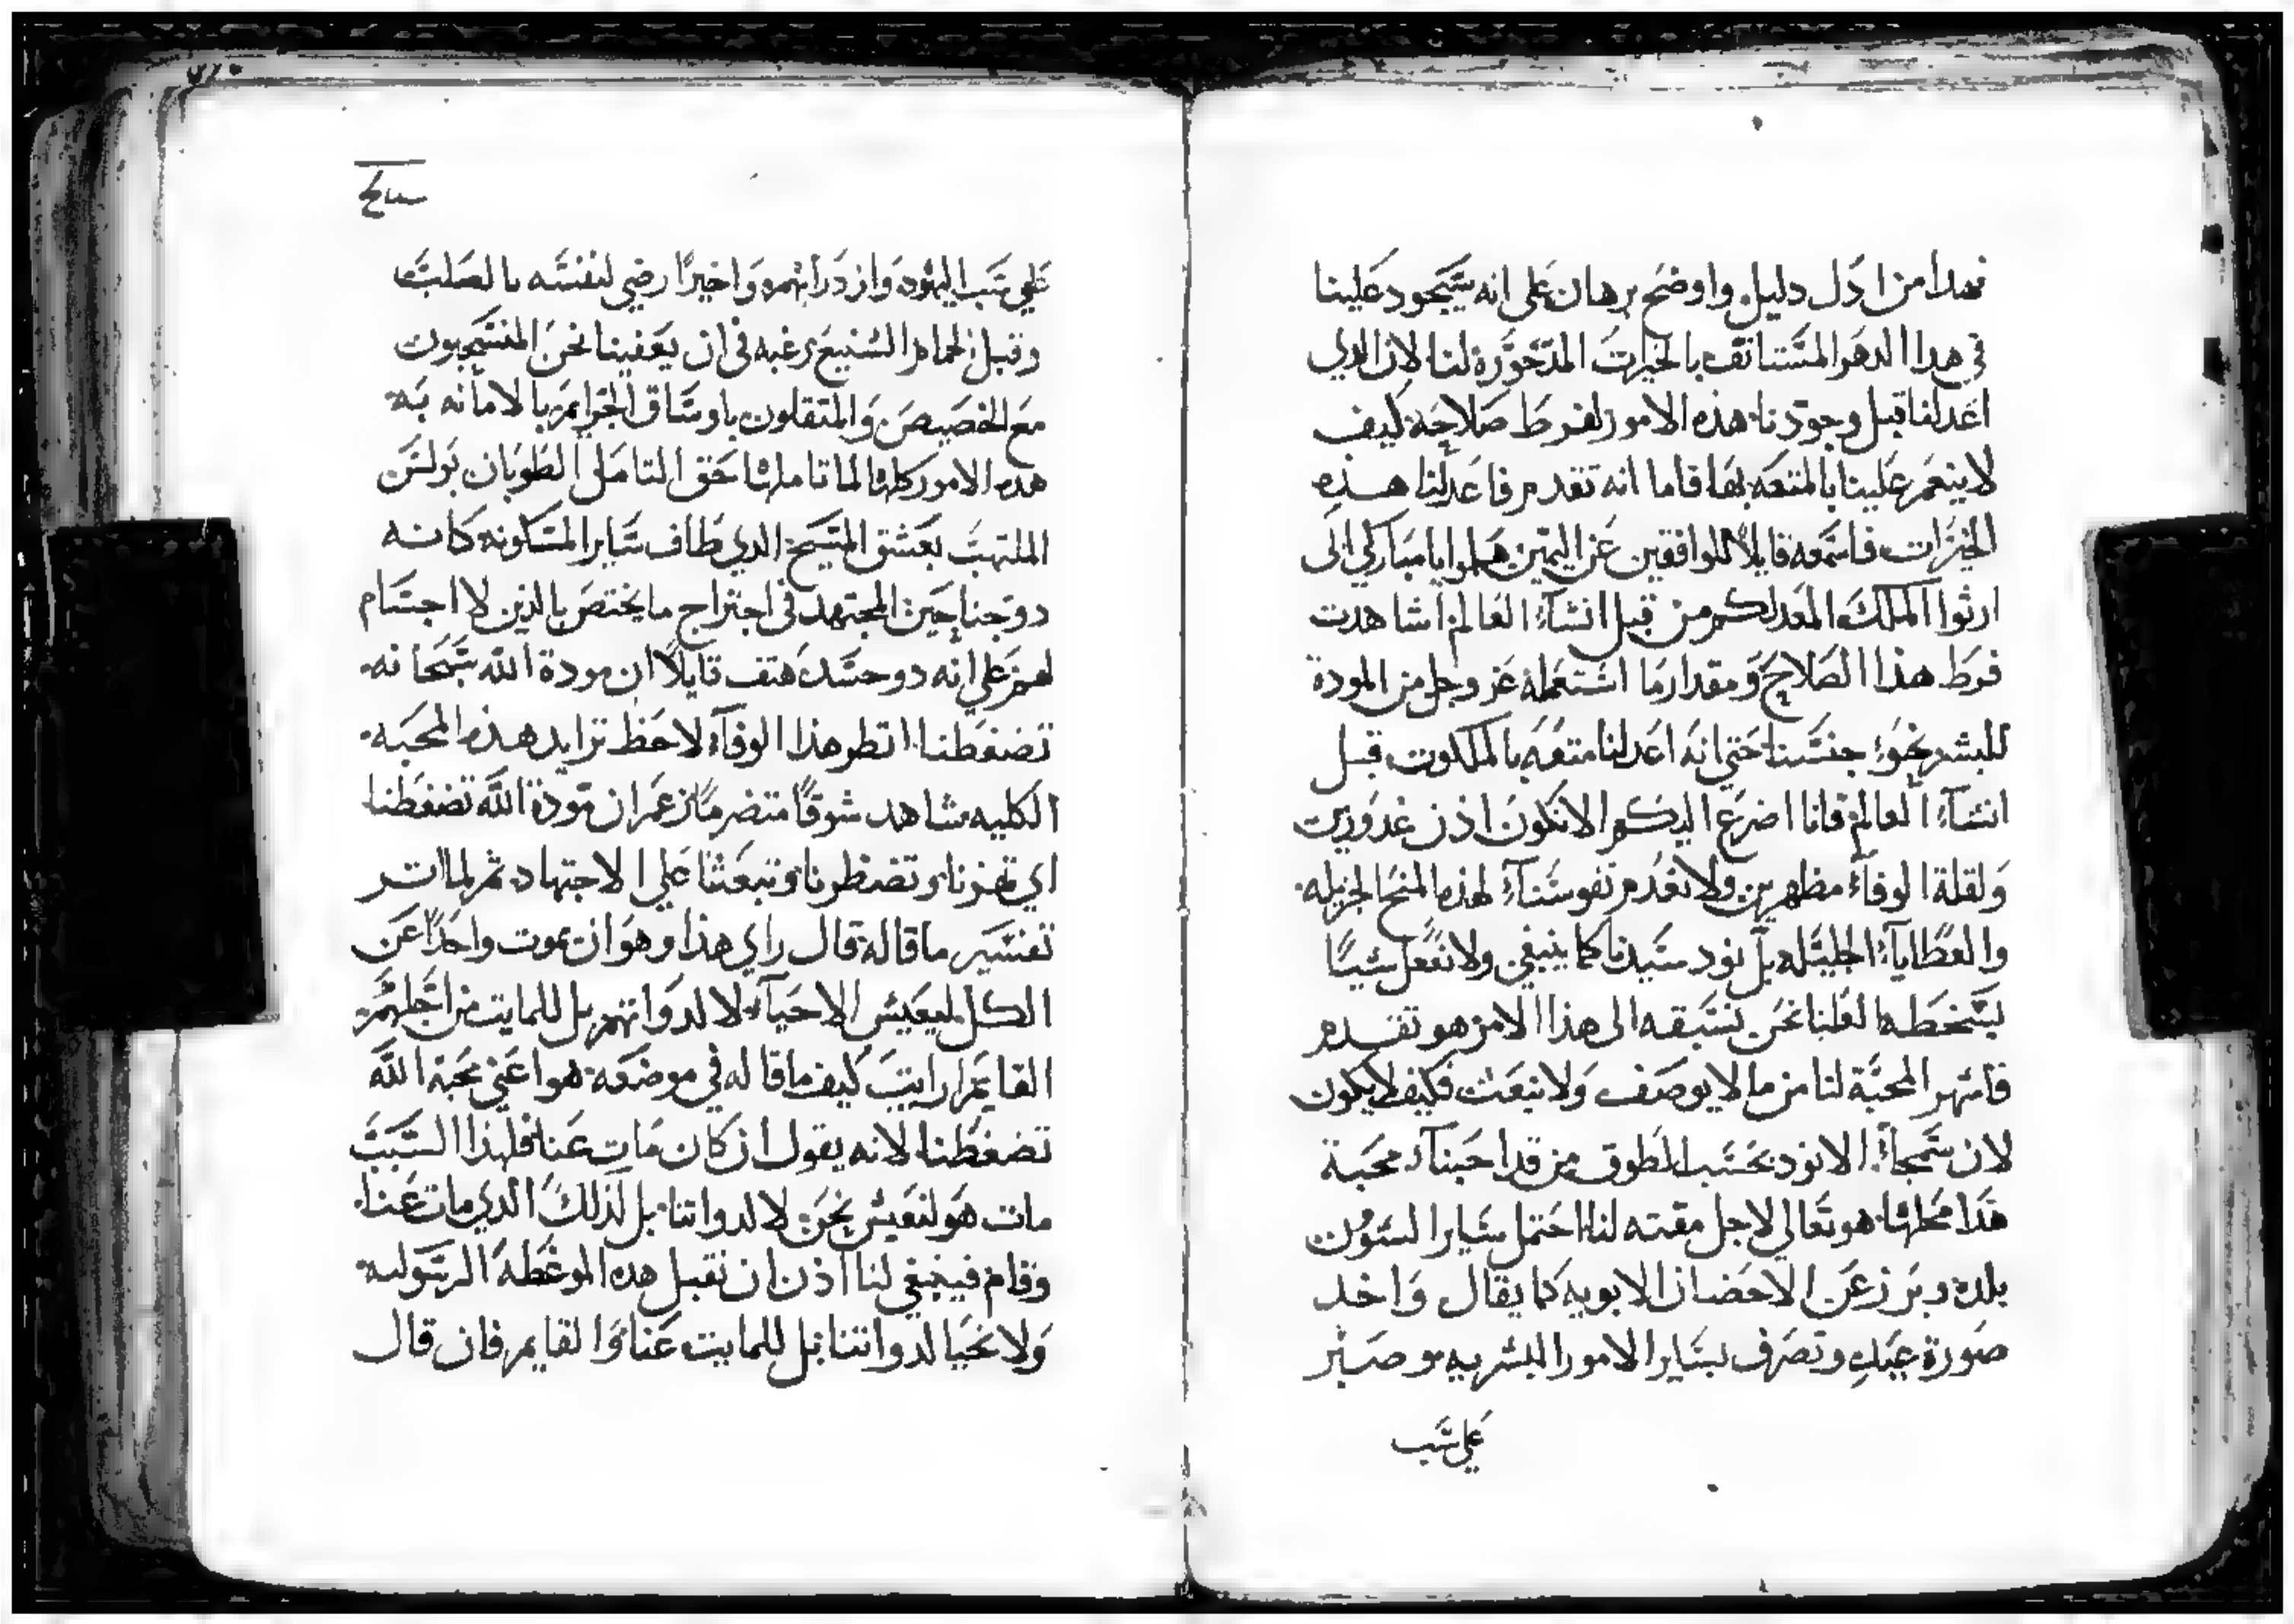 فهدا من ادل دليل واوضح برهان على انه سيجود علينا
في هدا الدهر المستانف بالخيرات المدخورة لنا لان الدي
اعد لنا قبل وجودنا هذه الامور لفرط صلاحه كيف
لا ينعم علينا بالمتعه بها فاما انه تقدم فاعد لنا هذه
الخيرات فاسمعه قايلاً للواقفين عن اليمين هلموا يا مباركي ابي
ارثوا الملك المعد لكم من قبل انشآء العالم اشاهدت
فرط هذا الصلاح ومقدار ما استعمله عز وجل من المودة
للبشر نحو جنسنا حتي انه اعد لنا متعه بالملكوت قبل
انشآء العالم فانا اضرع اليكم الا نكون اذن غدورين
ولقلة الوفآء مظهرين ولا نعدم نفوسنآء لهذه المنح الجزيله
والعطايآء الجليله بل نود سيدنا كما ينبغي ولا نفعل شيًا
يسخطه لعلنا نحن نسبقه الى هذا الامر هو تقدم
فاشهر المحبة لنا من ما لا يوصف ولا ينعت فكيف لا يكون
لان سمجآء الا نود بحسب الطوق من قد احبنآء محبة
هذا محلها هو تعالي لاجل مقته لنا احتمل ساير السوون
بلده وبرز عن الاحضان الابويه كما يقال واخد
صورة عبد وتصرف بساير الامور البشريه وصبر
علي سب
علي سب اليهود وازدرائهم واخيرًا رضي لنفسه بالصلب
وقبل الحمام الشنيع رغبه في ان يعفينا نحن المنسحبون
مع الخصيص والمتقلون باوساق الجرايم بالامانه به
هده الامور كلها لما تاملها حق التامل الطوبان بولس
الملتهب بعشق المسيح الدي طاف ساير المسكونه كانه
دو جناحين المجتهد في اجتراح ما يختص بالذين لا اجسام
لهم علي انه دو حسد هتف قايلاً ان مودة الله سبحانه
تضغطنا انظر هذا الوفآء لاحظ تزايد هذه المحبه
الكليه شاهد شوقًا متضرمًا زعم ان مودة الله تضغطنا
اي تهزنا وتضطرنا وتبعثنا علي الاجتهاد ثم لما اتر
تفسير ما قاله قال راي هذا وهو ان يموت واحدًا عن
الكل ليعيش الاحيآء لا لدواتهم بل للمايت من اجلهم
القايم ارايت كيف ما قاله في موضعه هوا عني محبة الله
تضغطنا لانه يقول ان كان مات عنا فلهذا السبب
مات هو لنعيش نحن لا لدواتنا بل لذلك الدي مات عنا
وقام فينبغي لنا اذن ان نقبل هده الموعظه الرسوليه
ولا نحيا لدواتنا بل للمايت عنا والقايم فان قال